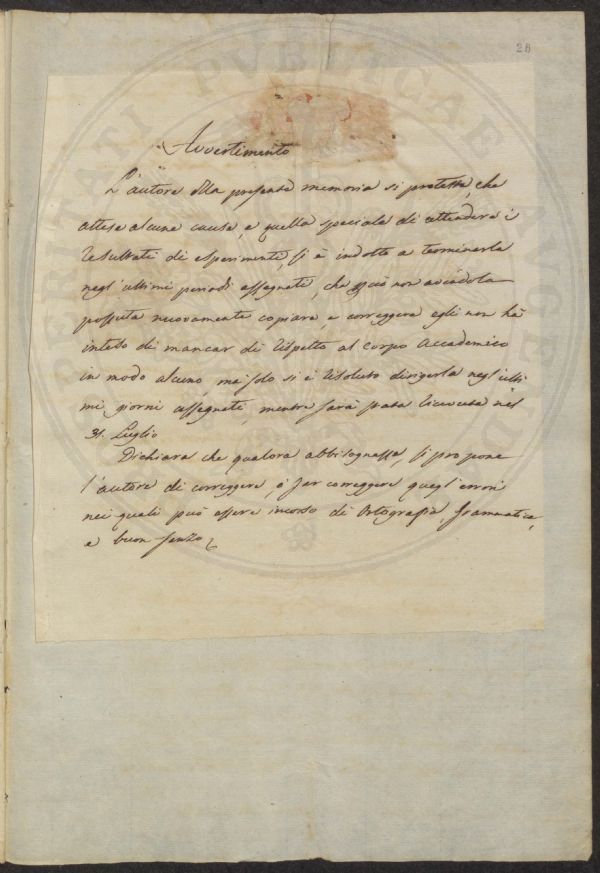 28
Avvertimento
L'autore della presente memoria si protesta, che
attese alcune cause, e quella speciale di attendere i
resultati di esperimenti, si è indotto a terminarla
negl'ultimi periodi assegnati, che perciò non avendola
possuta nuovamente copiare, e correggere egli non ha
inteso di mancar di rispetto al Corpo Accademico
in modo alcuno, ma solo si è risoluto dirigerla negl'ulti
mi giorni assegnati, mentre sarà stata ricevuta nel
31. Luglio
Dichiara che qualora abbisognasse, si propone
l'autore di correggere, o far correggere quegl'errori
nei quali può essere incorso di Ortografia, Grammatica,
e buon senso